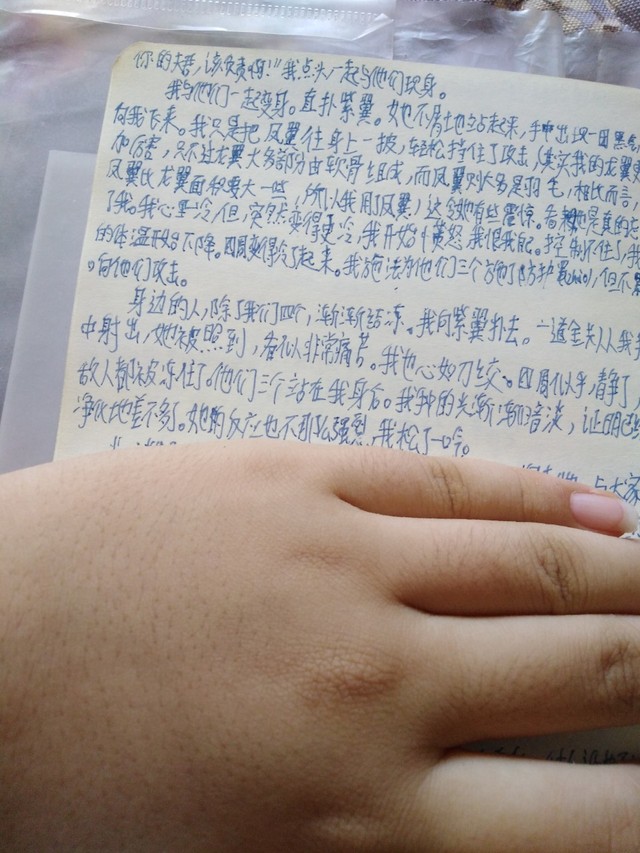 你的夫君,该负责啊!”我点头,一起与他们现身。
我与他们一起变身。直扑紫翼。她不屑地站起来,手中出现一团黑
向我飞来。我只是把凤翼往身上一披,轻松挡住了攻击(其实我的龙翼更
加厉害,只不过龙翼大多部分由软骨组成,而凤翼则大多是羽毛,相比而言,
凤翼比龙翼面积要大一些,所以我用了凤翼)这令她有些震惊。看她是真的
了我。我心里冷,但,突然变得更冷,我开始愤怒,我恨我自己。控制不住了,我
的体温开始下降。四周变得冷了起来。我施法为他们三个施了防护罩,但不
,向他们攻击。
身边的人,除了我们四个,渐渐结冻。我向紫翼扑去。一道金光从我
中射出,她被照到,看似非常痛苦。我也心如刀绞。四周似乎静了,
敌人都被冻住了。他们三个站在我身后。我手中的光渐渐暗淡,证明已经
净化地差不多了。她的反应也不那么强烈,我松了一口气。
与大家